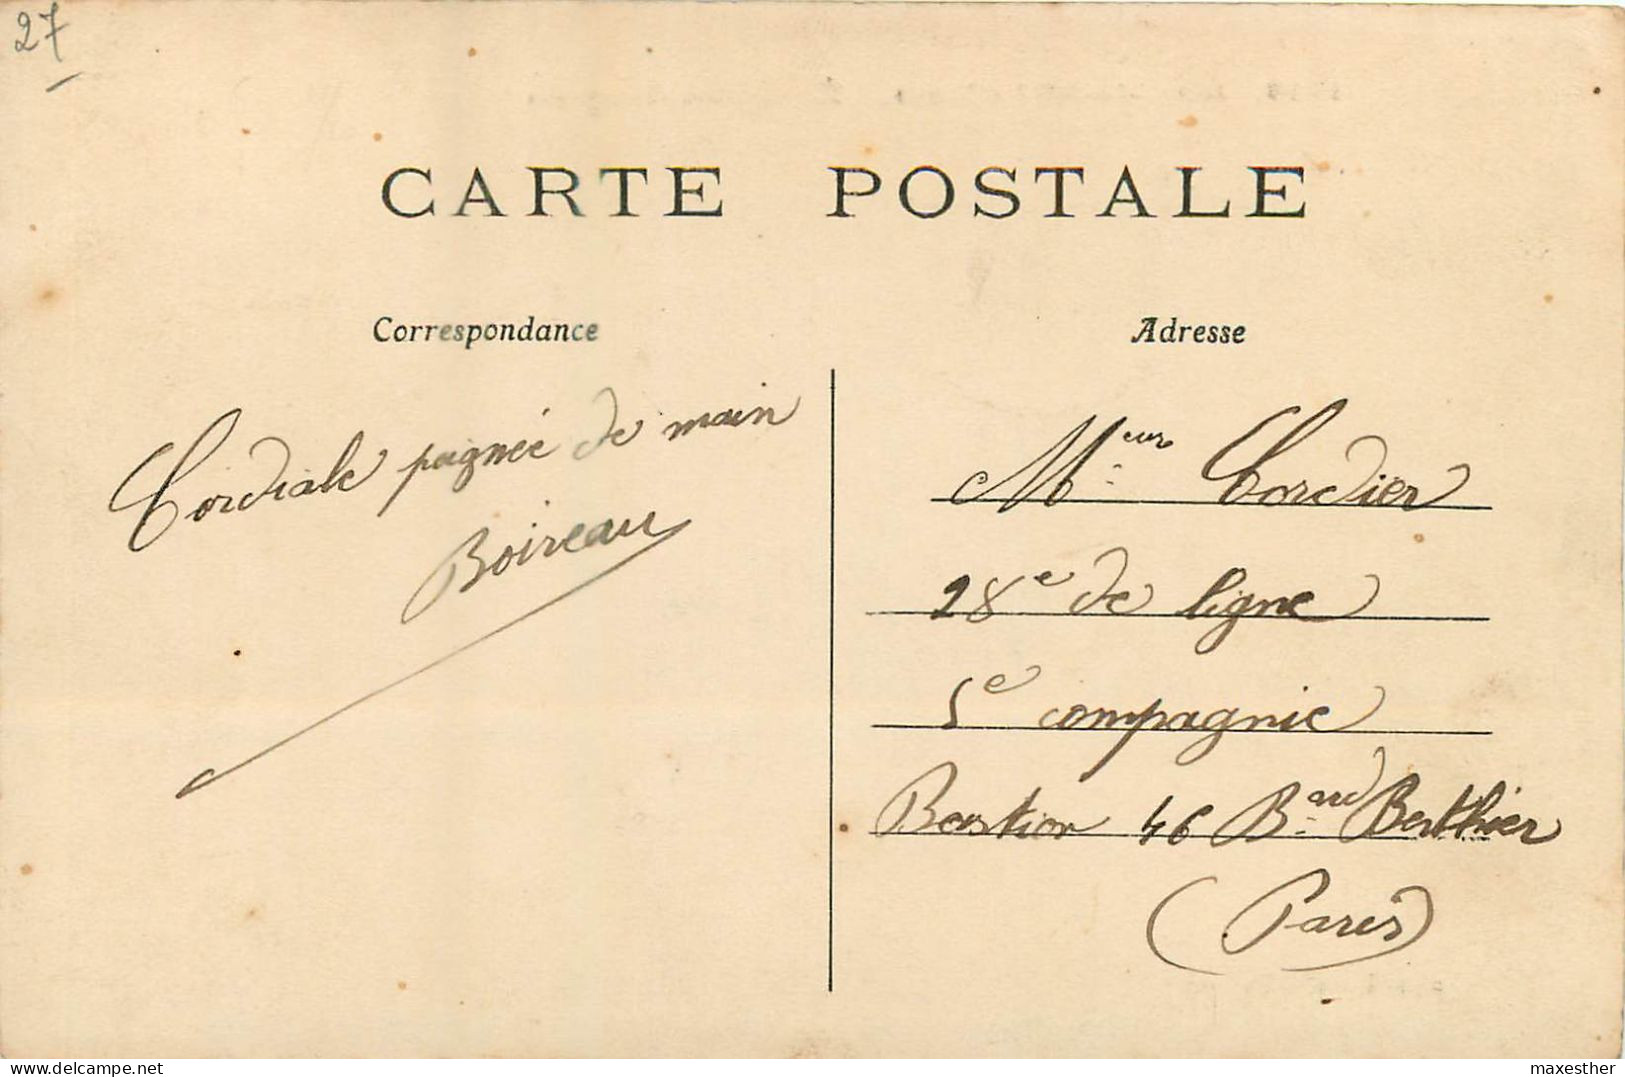 27
CARTE POSTALE
Correspondance
Cordiale poignée de main
Boireau
Adresse
Mr eur Cordier
28e de ligne
5e compagnie
Bastion 46 Bard Berthier
(Paris)
delcampe.net
maxesther